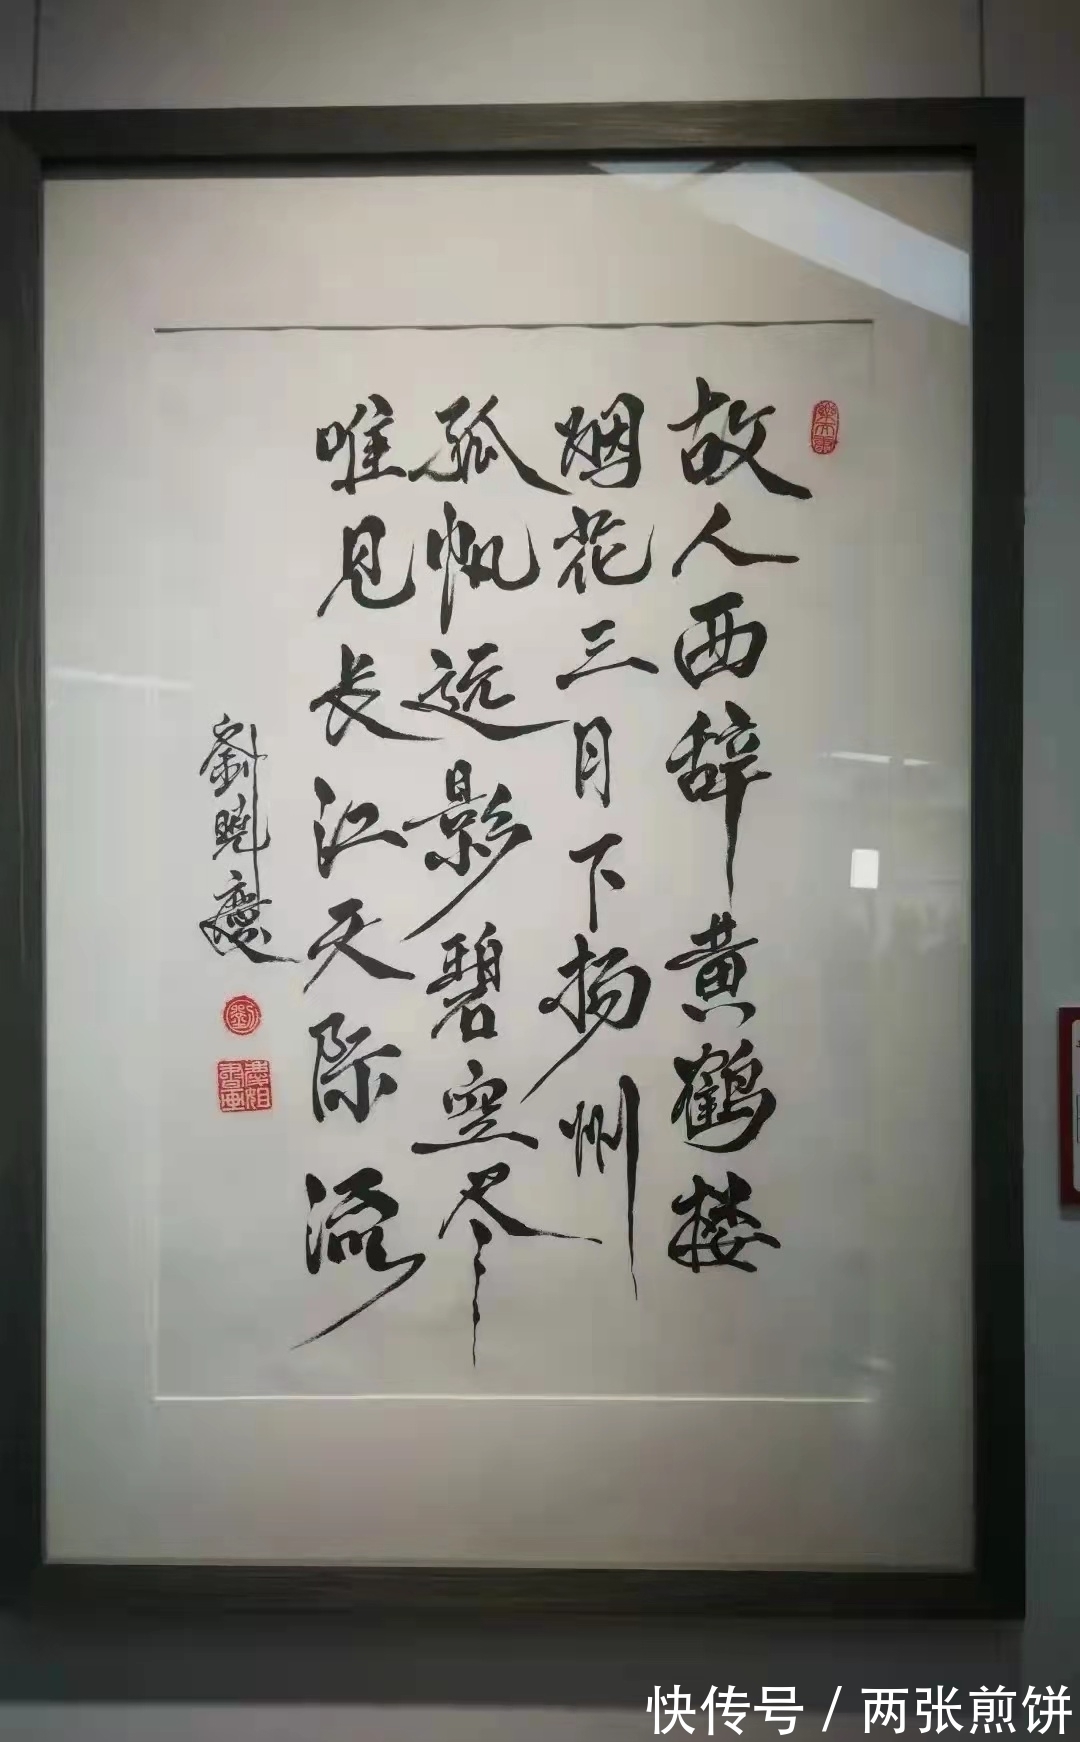 故人西辞黄鹤楼
烟花三月下扬州
孤帆远影碧空尽
唯见长江天际流
劉曉慶
劉
慶姐書画
快传号 / 两张煎饼